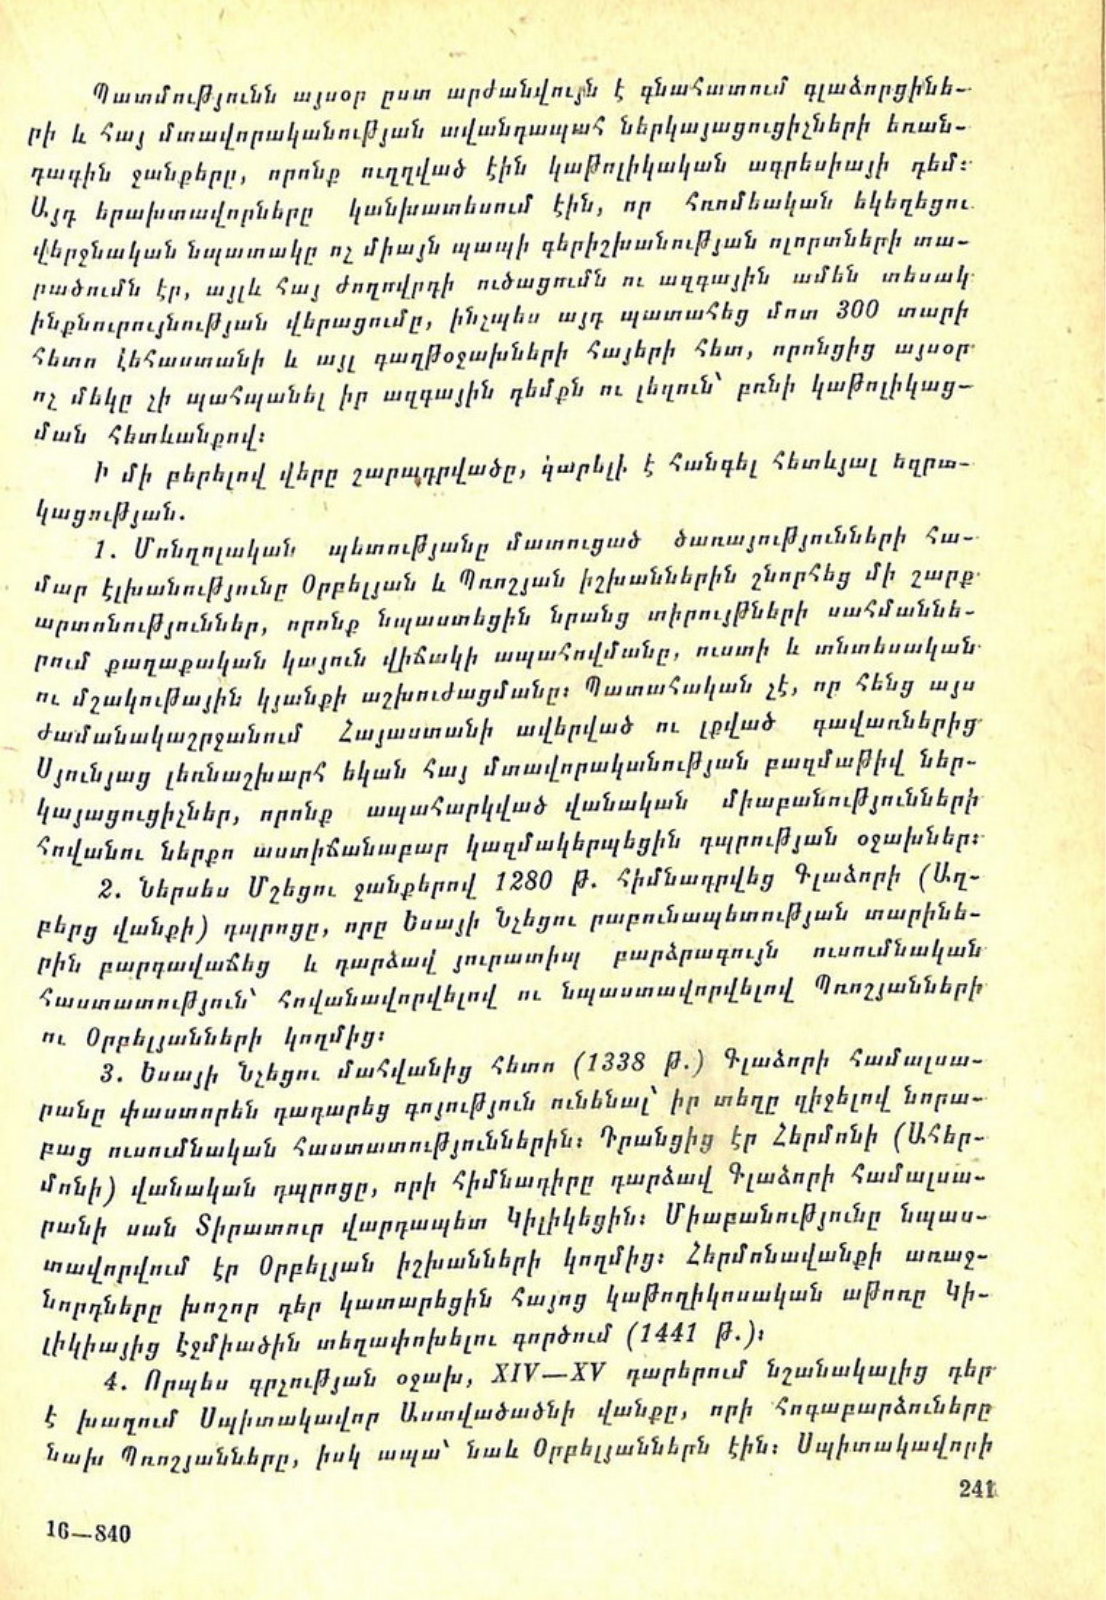 Պատմությունն այսօր ըստ արժանվույն է գնահատում գլաձորցինե-
րի և հայ մտավորականության ավանդապահ ներկայացուցիչների եռան-
դագին ջանքերը, որոնք ուղղված էին կաթոլիկական ագրեսիայի դեմ։
Այդ երախտավորները կանխատեսում էին, որ Հռոմեական եկեղեցու
վերջնական նպատակը ոչ միայն պապի գերիշխանության ոլորտների տա-
րածումն էր, այլև հայ ժողովրդի ուծացումն ու ազգային ամեն տեսակ
ինքնուրույնության վերացումը, ինչպես այդ պատահեց մոտ 300 տարի
հետո Լեհաստանի և այլ գաղթօջախների հայերի հետ, որոնցից այսօր
ոչ մեկը չի պահպանել իր ազգային դեմքն ու լեզուն՝ բռնի կաթոլիկաց-
ման հետևանքով։
Ի մի բերելով վերը շարադրվածը, կարելի է հանգել հետևյալ եզրա-
կացության.
1. Մոնղոլական պետությանը մատուցած ծառայությունների հա-
մար էլխանությունը Օրբելյան և Պռոշյան իշխաններին շնորհեց մի շարք
արտոնություններ, որոնք նպաստեցին նրանց տիրույթների սահմաննե-
րում քաղաքական կայուն վիճակի ապահովմանը, ուստի և տնտեսական
ու մշակութային կյանքի աշխուժացմանը։ Պատահական չէ, որ հենց այս
ժամանակաշրջանում Հայաստանի ավերված ու լքված գավառներից
Սյունյաց լեռնաշխարհ եկան հայ մտավորականության բազմաթիվ ներ-
կայացուցիչներ, որոնք ապահարկված վանական միաբանությունների
հովանու ներքո աստիճանաբար կազմակերպեցին դպրության օջախներ։
2. Ներսես Մշեցու ջանքերով 1280 թ. հիմնադրվեց Գլաձորի (Աղ-
բերց վանքի) դպրոցը, որը Եսայի Նչեցու րաբունապետության տարինե-
րին բարգավաճեց և դարձավ յուրատիպ բարձրագույն ուսումնական
հաստատություն՝ հովանավորվելով ու նպաստավորվելով Պռոշյանների
ու Օրբելյանների կողմից։
3. Եսայի Նչեցու մահվանից հետո (1338 թ.) Գլաձորի համալսա-
րանը փաստորեն դադարեց գոյություն ունենալ՝ իր տեղը զիջելով նորա-
բաց ուսումնական հաստատություններին։ Դրանցից էր Հերմոնի (Ահեր-
մոնի) վանական դպրոցը, որի հիմնադիրը դարձավ Գլաձորի համալսա-
րանի սան Տիրատուր վարդապետ Կիլիկեցին։ Միաբանությունը նպաս-
տավորվում էր Օրբելյան իշխանների կողմից։ Հերմոնավանքի առաջ-
նորդները խոշոր դեր կատարեցին Հայոց կաթողիկոսական աթոռը Կի-
լիկիայից Էջմիածին տեղափոխելու գործում (1441 թ.)։
4. Որպես գրչության օջախ, XIV—XV դարերում նշանակալից դեր
է խաղում Սպիտակավոր Աստվածածնի վանքը, որի հոգաբարձուները
նախ Պռոշյանները, իսկ ապա՝ նաև Օրբելյաններն էին։ Սպիտակավորի
241
16—840